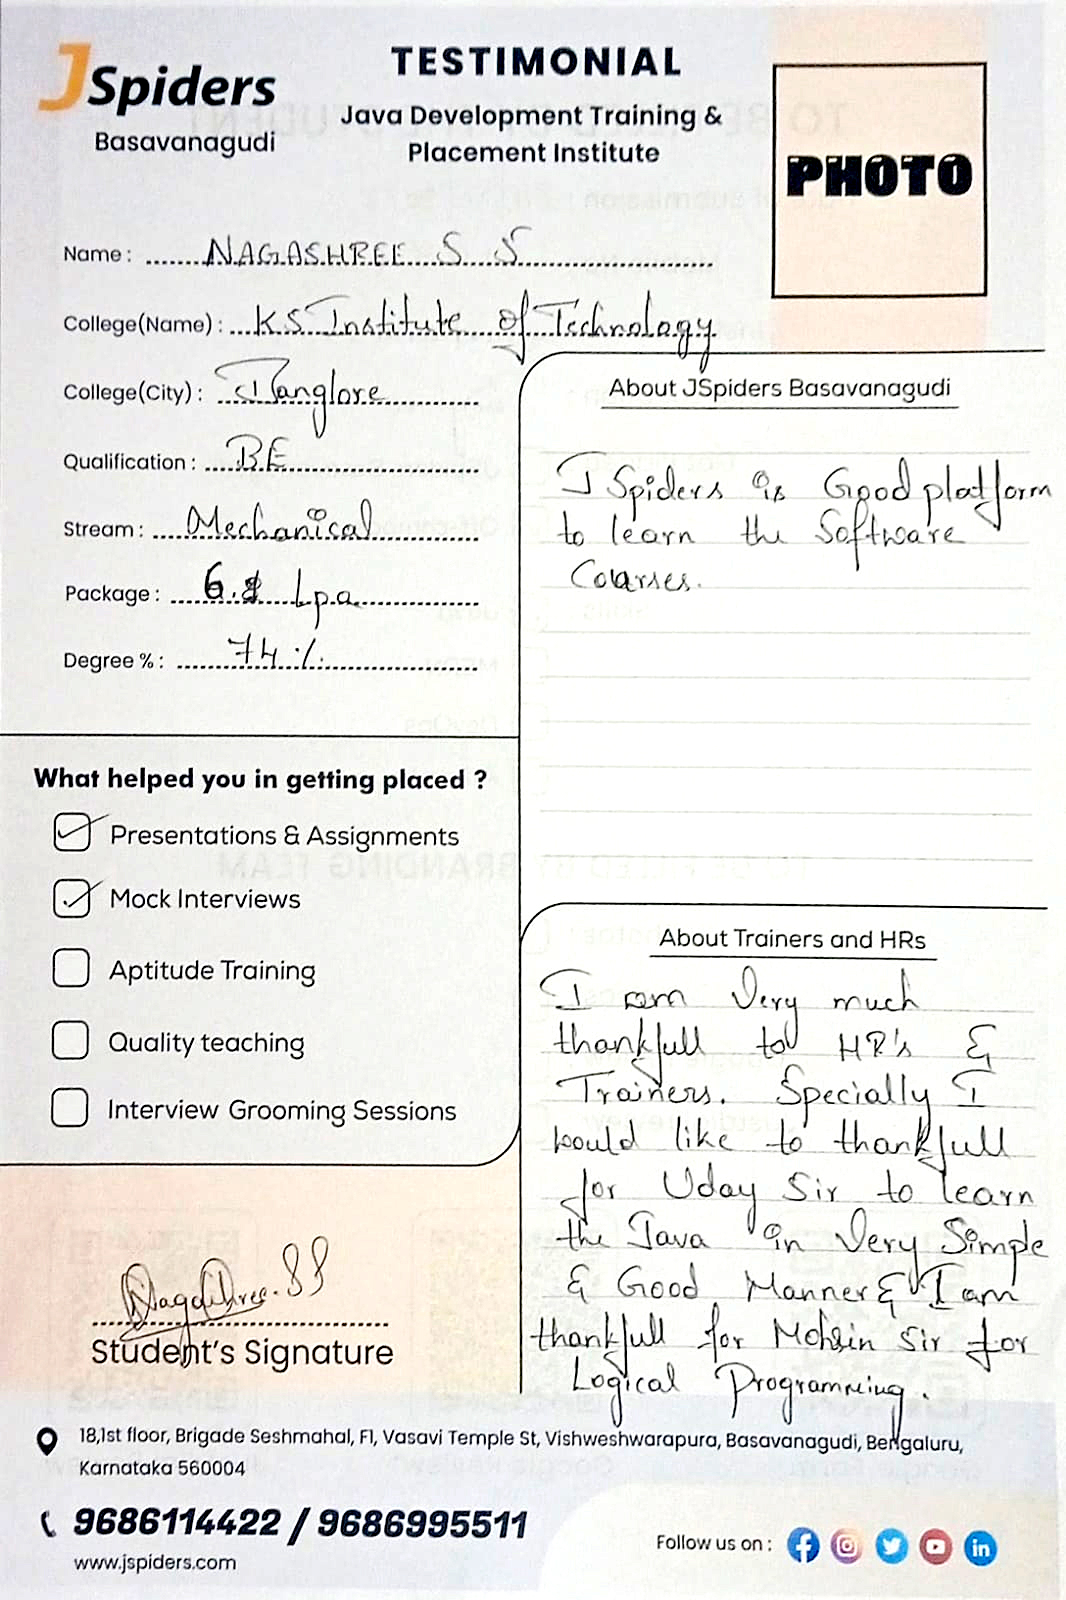 JSpiders
Basavanagudi
TESTIMONIAL
Java Development Training &
Placement Institute
PHOTO
Name : NAGASHREE S S
College(Name) : K.S Institute of Technology
College(City) : Banglore
Qualification : BE
Stream : Mechanical
Package : 6. Lpa
Degree % : 74 %
What helped you in getting placed ?
Presentations & Assignments
Mock Interviews
Aptitude Training
Quality teaching
Interview Grooming Sessions
Nagashree. SS
Student's Signature
About JSpiders Basavanagudi
J Spiders is Good platform
to learn the Software
Courses.
About Trainers and HRs
I am Very much
thankfull to HR's &
Trainers. Specially I
would like to thankfull
for Uday Sir to learn
the Java in Very Simple
& Good Manner & I am
thankfull for Mohsin Sir for
Logical Programming.
18,1st floor, Brigade Seshmahal, F1, Vasavi Temple St, Vishweshwarapura, Basavanagudi, Bengaluru,
Karnataka 560004
9686114422 / 9686995511
www.jspiders.com
Follow us on :